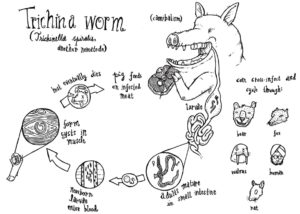 Trichina worm
(Trichinella spiralis,
another nematode)
(cannibalism)
pig feeds
on infected
meat
larvae
adults mature
in small intestine
Newborn
larvae
enter blood
form
cysts in
muscle
host eventually dies
can cross-infect and
cycle through:
bear
fox
walrus
human
rat